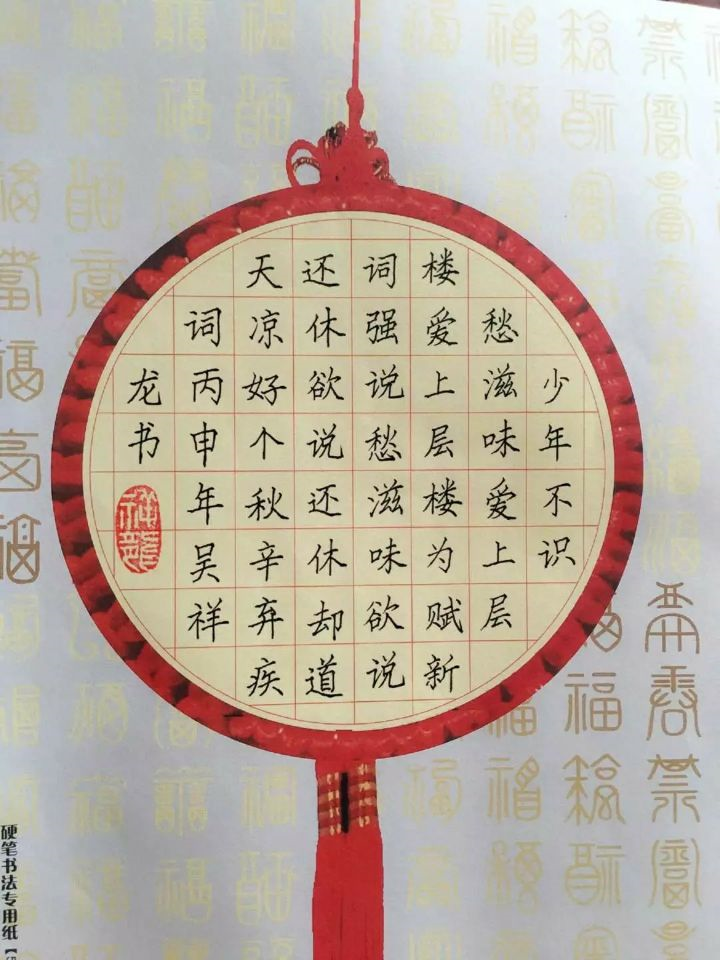 少年不识
愁滋味爱上层
楼爱上层楼为赋新
词强说愁滋味欲说
还休欲说还休却道
天凉好个秋辛弃疾
词丙申年吴祥
龙书
祥龍
硬笔书法专用纸